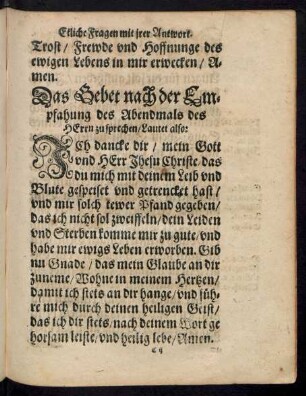 Etliche Fragen mit jrer Antwort.
Trost / Frewde vnd Hoffnunge des
ewigen Lebens in mir erwecken / A-
men.
Das Gebet nach der Em-
pfahung des Abendmals des
HErrn zu sprechen / Lautet also:
ICH dancke dir / mein Gott
vnd HErr Jhesu Christe / das
du mich mit deinem Leib vnd
Blute gespeiset vnd getrencket hast /
vnd mir solch tewer Pfand gegeben /
das ich nicht sol zweiffeln / dein Leiden
vnd Sterben komme mir zu gute / vnd
habe mir ewigs Leben erworben. Gib
nu Gnade / das mein Glaube an dir
zuneme / Wohne in meinem Hertzen /
damit ich stets an dir hange / vnd füh-
re mich durch deinen heiligen Geist /
das ich dir stets / nach deinem Wort ge
horsam leiste / vnd heilig lebe / Amen.